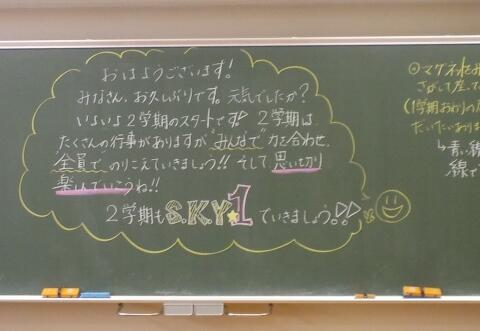 おはようございます!
みなさん、お久しぶりです。元気でしたか?
いよいよ2学期のスタートです! 2学期は、
たくさんの行事がありますが"みんなで"力を合わせ、
全員で のりこえていきましょう!! そして 思いっきり
楽しんでいこうね!!
2学期も S.K.Y★1 でいきましょう!!
⊙マグネットをみ
さがして座って
(1学期おわりの
だいたいあります
↳青い線
線で